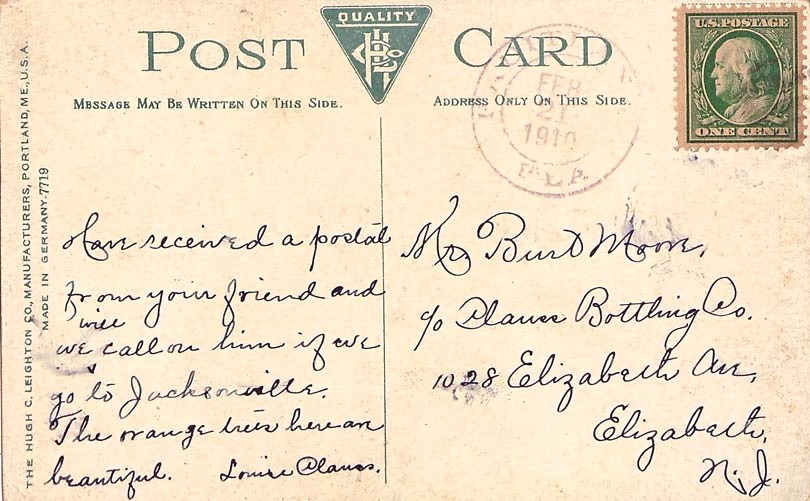 QUALITY
POST CARD
MESSAGE MAY BE WRITTEN ON THIS SIDE.
ADDRESS ONLY ON THIS SIDE.
U.S. POSTAGE
ONE CENT
FEB
21
1910
FLA
THE HUGH C. LEIGHTON CO., MANUFACTURERS, PORTLAND, ME., U.S.A.
MADE IN GERMANY-7719
Have received a postal
from your friend and
will
we call on him if we
go to Jacksonville.
The orange trees here are
beautiful. Louise Clauss.
Mr. Burt Moore,
c/o Clauss Bottling Co.
1028 Elizabeth Ave,
Elizabeth,
N.J.